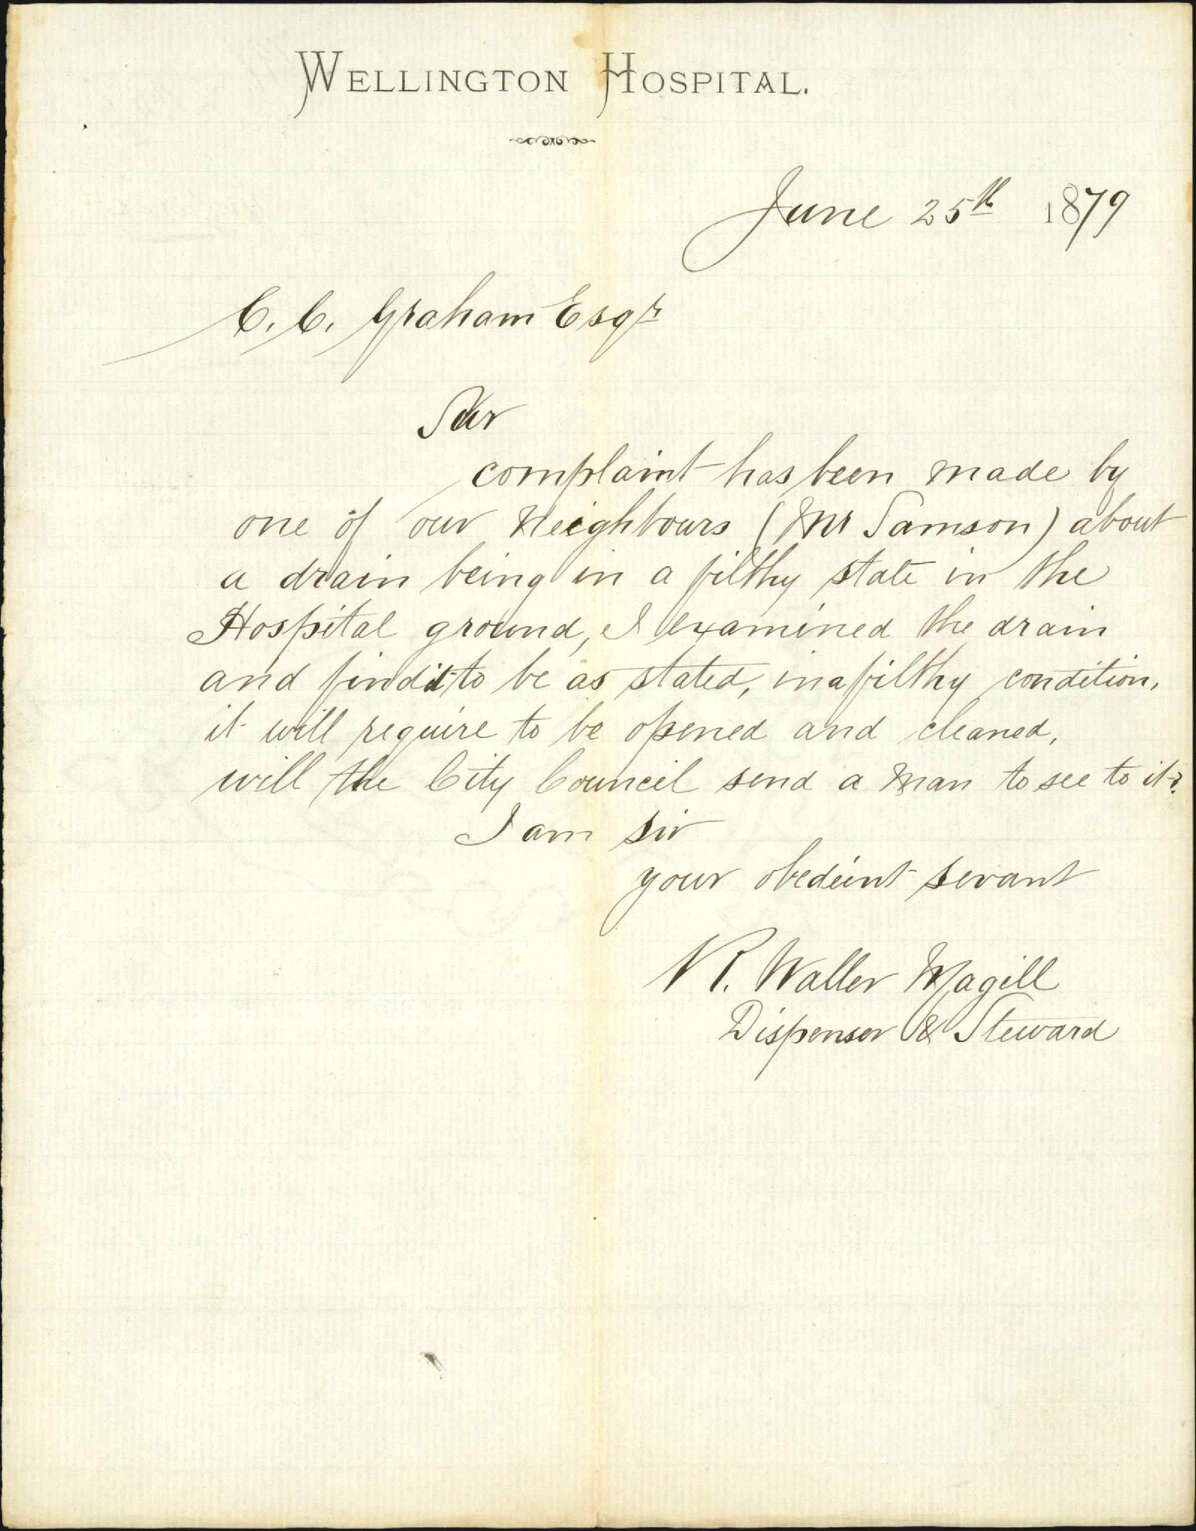 WELLINGTON HOSPITAL.
June 25th 1879
C. C. Graham Esqr
Sir
complaint has been made by
one of our Neighbours (Mr Samson) about
a drain being in a filthy state in the
Hospital ground, I examined the drain
and find it to be as stated, in a filthy condition,
it will require to be opened and cleaned,
will the City Council send a man to see to it?
I am sir
your obedeint servant
Waller Magill
Dispenser & Steward